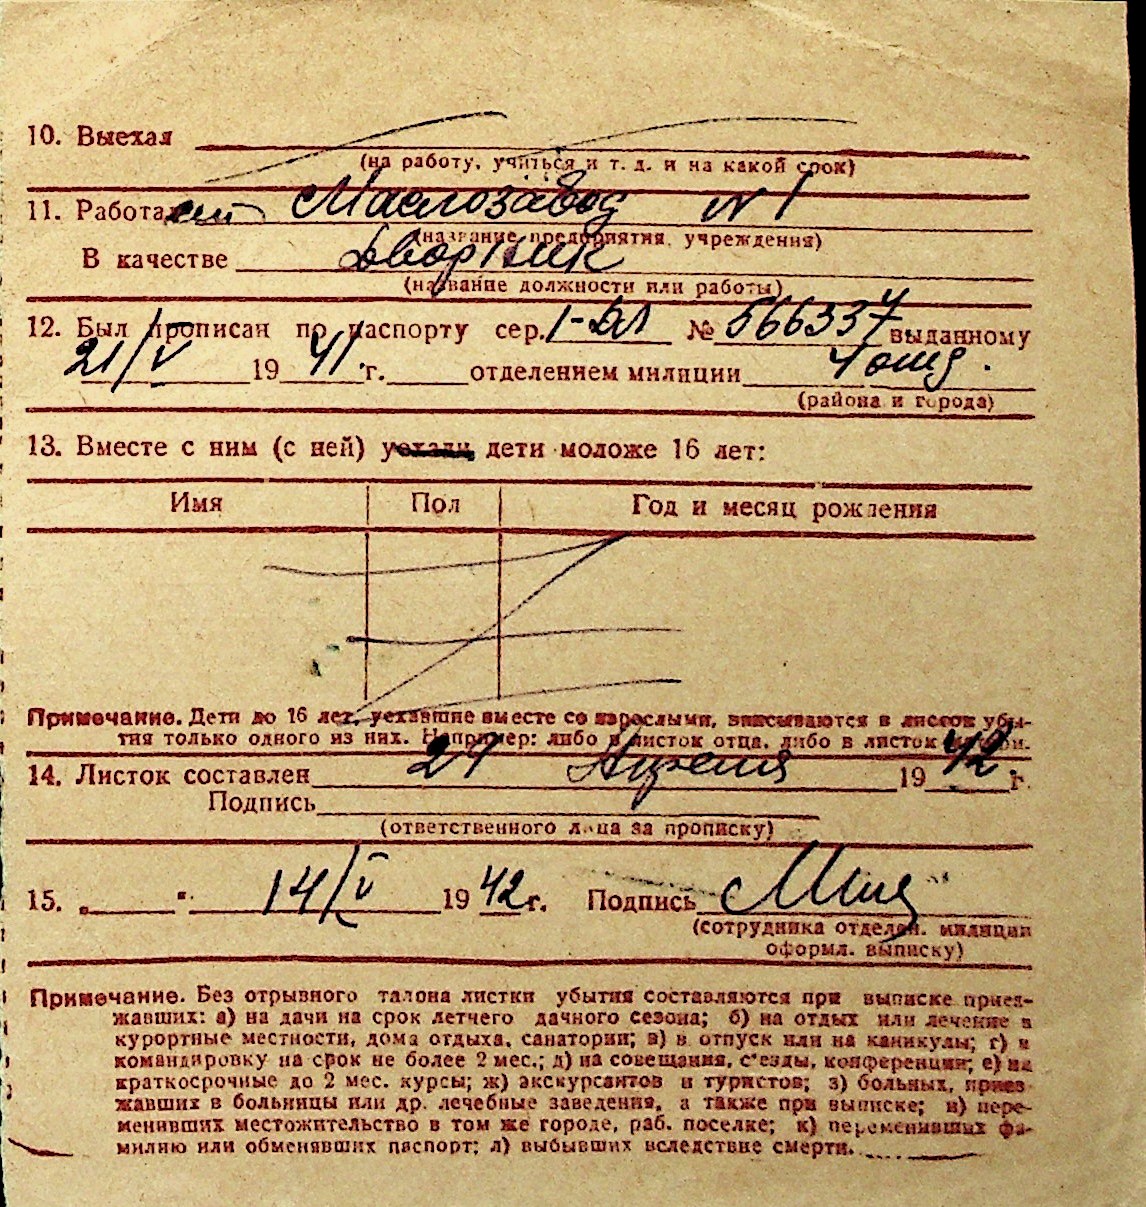 10. Выехал
(на работу, учиться и т. д. и на какой срок)
11. Работает Маслозавод № 1
(название предприятия, учреждения)
В качестве Дворник
(название должности или работы)
12. Был прописан по паспорту сер. 1-БЛ № 566337 выданному
21/V 1941 г. отделением милиции 4 отд.
(района и города)
13. Вместе с ним (с ней) уехали дети моложе 16 лет:
Имя Пол Год и месяц рождения
Примечание. Дети до 16 лет, уехавшие вместе со взрослыми, вписываются в листок убы-
тия только одного из них. Например: либо в листок отца, либо в листок матери.
14. Листок составлен 29 Апреля 1942 г.
Подпись
(ответственного лица за прописку)
15. „ " 14/V 1942 г. Подпись
(сотрудника отделен. милиции
оформл. выписку)
Примечание. Без отрывного талона листки убытия составляются при выписке приез-
жавших: а) на дачи на срок летнего дачного сезона; б) на отдых или лечение в
курортные местности, дома отдыха, санатории; в) в отпуск или на каникулы; г) в
командировку на срок не более 2 мес.; д) на совещания, с'езды, конференции; е) на
краткосрочные до 2 мес. курсы; ж) экскурсантов и туристов; з) больных, приез
жавших в больницы или др. лечебные заведения, а также при выписке; и) пере-
менивших местожительство в том же городе, раб. поселке; к) переменивших фа-
милию или обменявших паспорт; л) выбывших вследствие смерти.